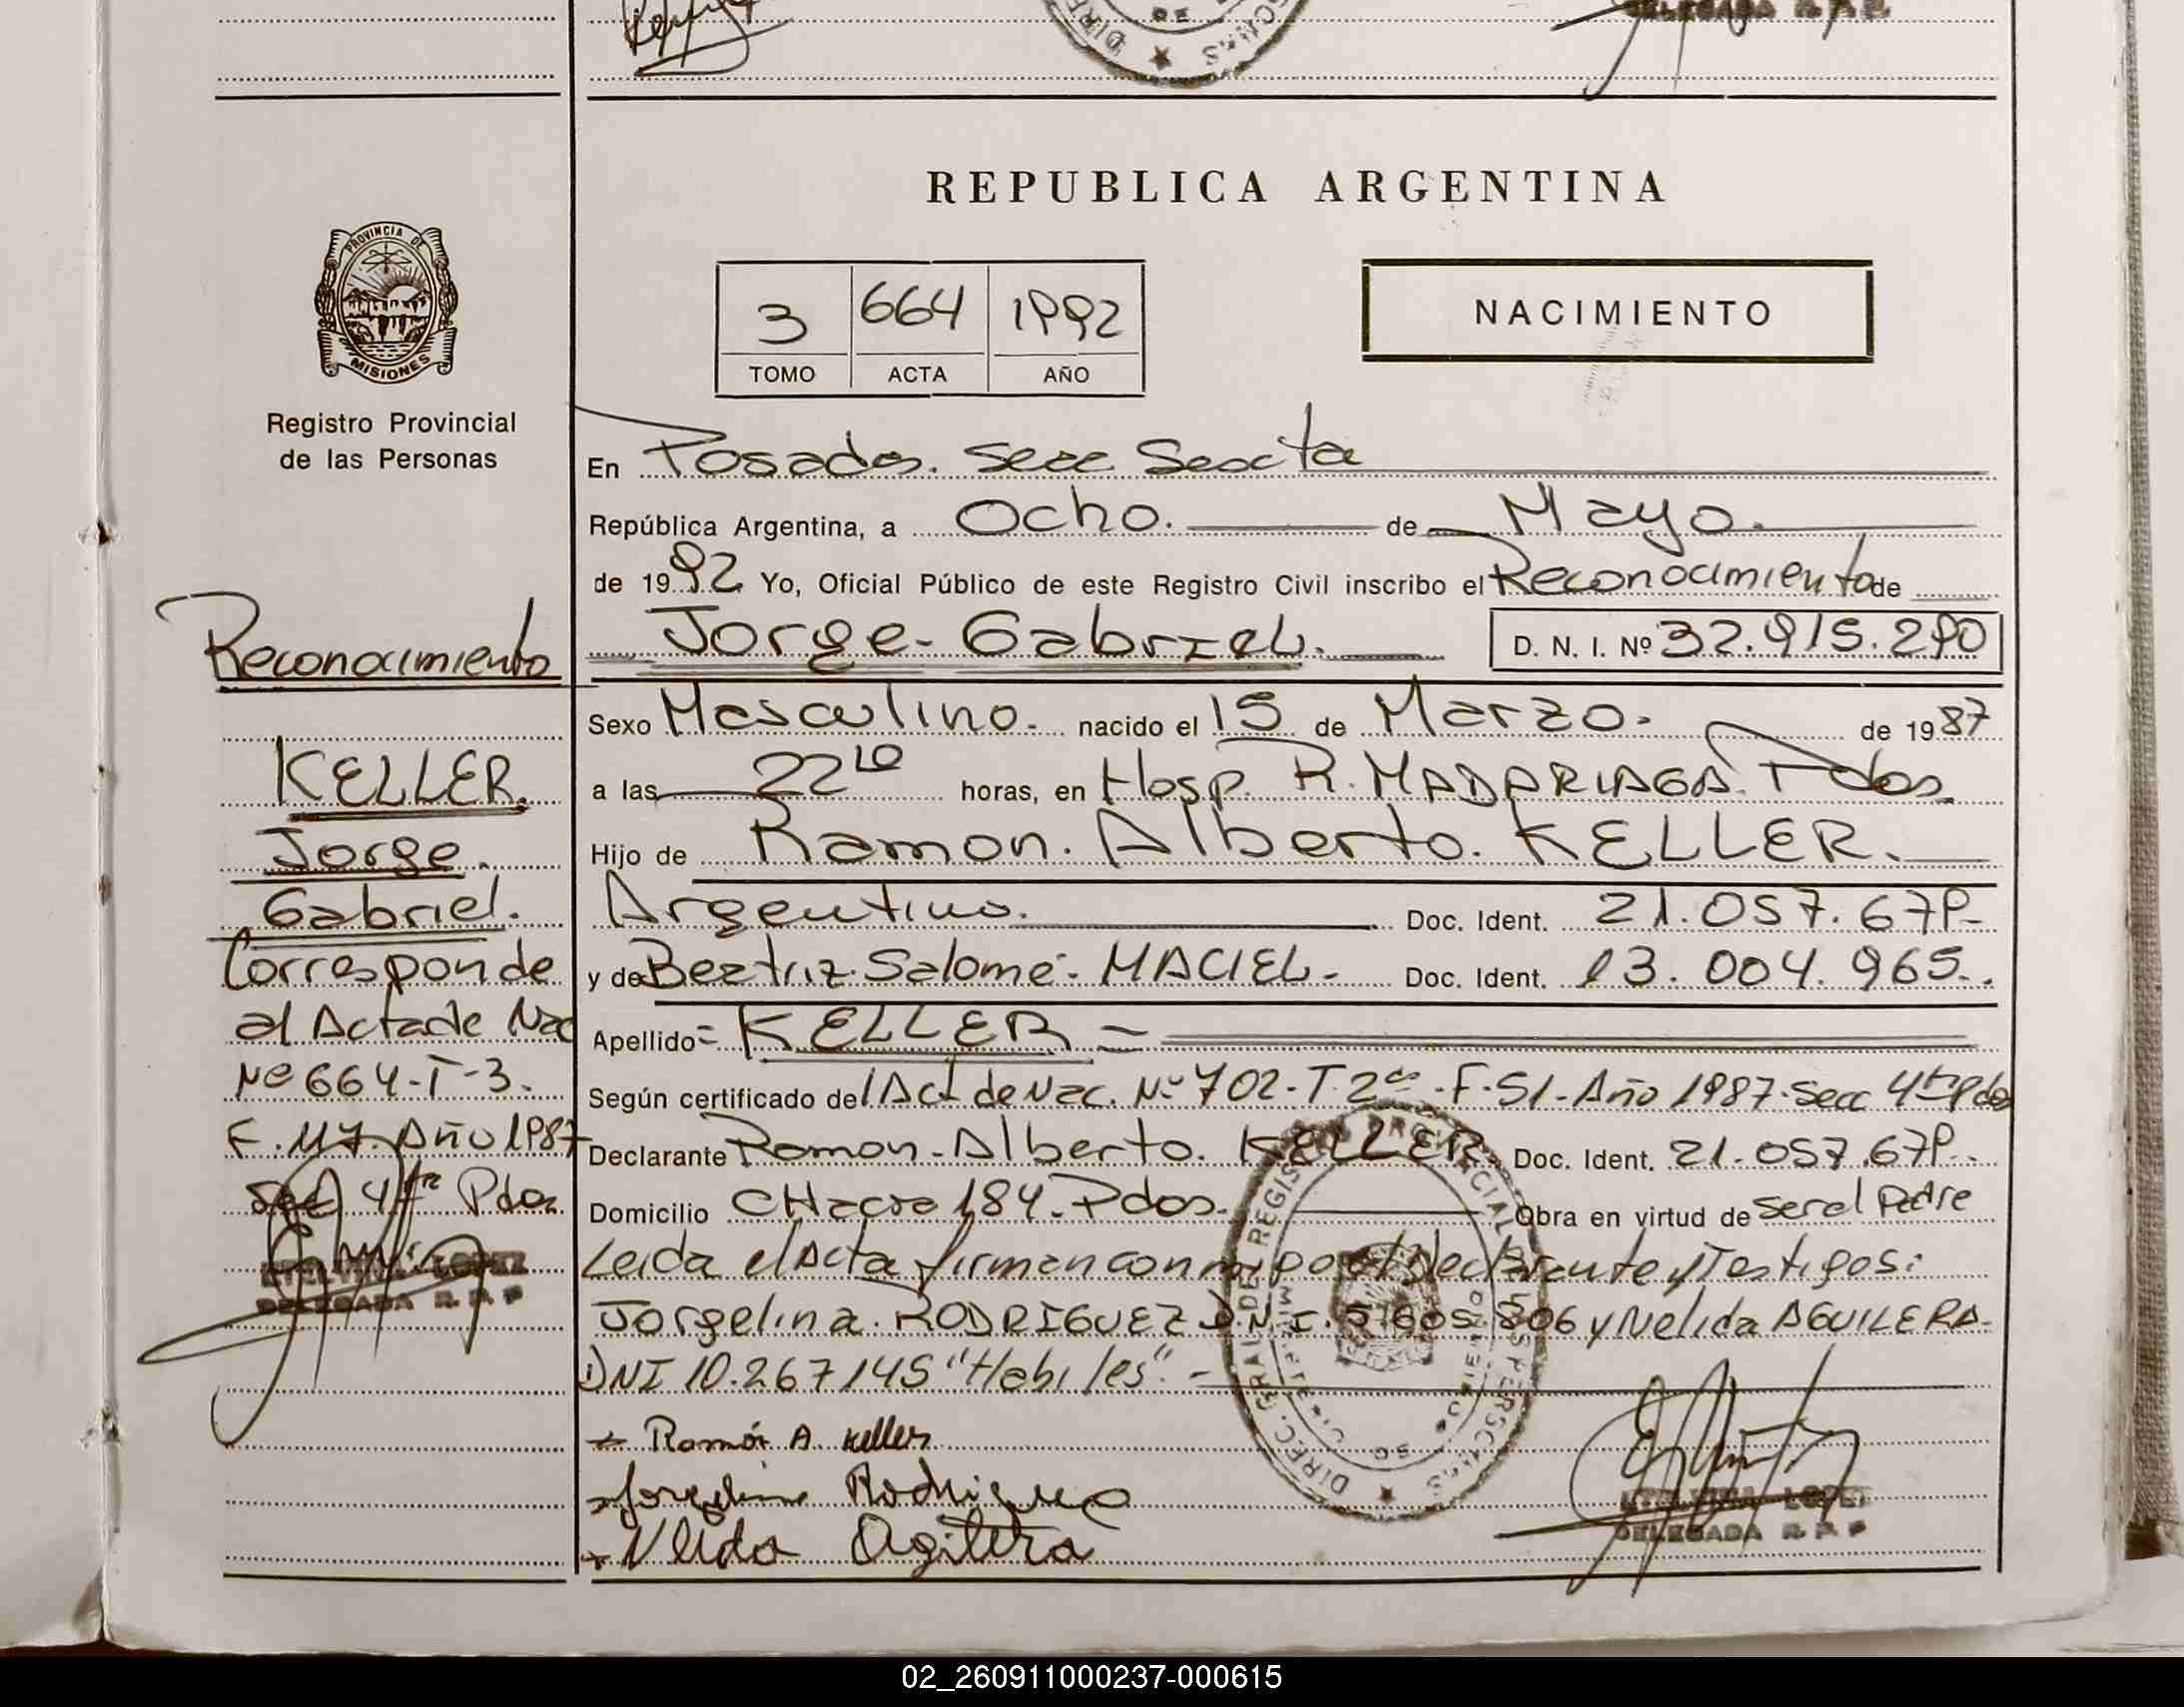 REPUBLICA ARGENTINA
PROVINCIA DE
MISIONES
Registro Provincial
de las Personas
3 664 1992
TOMO ACTA AÑO
NACIMIENTO
En Posadas. Secc Sexta
República Argentina, a Ocho. de Mayo.
de 1992 Yo, Oficial Público de este Registro Civil inscribo el Reconocimiento de
Jorge- Gabriel. D. N. I. Nº 32.915.290
Sexo Masculino. nacido el 15 de Marzo. de 1987
a las 22 10 horas, en Hosp. R. MADARIAGA. Pdas.
Hijo de Ramon. Alberto. KELLER.
Argentino. Doc. Ident. 21.057.679-
y de Beatriz. Salomé- MACIEL- Doc. Ident. 13.004.965.
Apellido= KELLER =
Según certificado del Act de Nac. Nº 702-T-2do-F-51-Año 1987-Secc 4ta Pdas
Declarante Ramon-Alberto. KELLER Doc. Ident. 21.057.679.
Domicilio CHacra 184. Pdas. Obra en virtud de ser el Padre
Leida el Acta firman conmigo el Declarante y Testigos:
Jorgelina. RODRIGUEZ D.N.I. 806 y Nelida AGUILERA-
DNI 10.267145 "Habiles".-
Ramón A. Keller
Jorgelina Rodriguez
Nelida Agilera
LOPEZ
DELEGADA R. P. P
Reconocimiento
KELLER.
Jorge.
Gabriel.
Corresponde
al Acta de Nac
Nº 664-T-3.
F. 117. Año 1987
Secc 4ta Pdas.
LOPEZ
DELEGADA R. P. P
DIREC. GRAL DE REGIS PROVINCIAL DE LAS PERSONAS
02_260911000237-000615